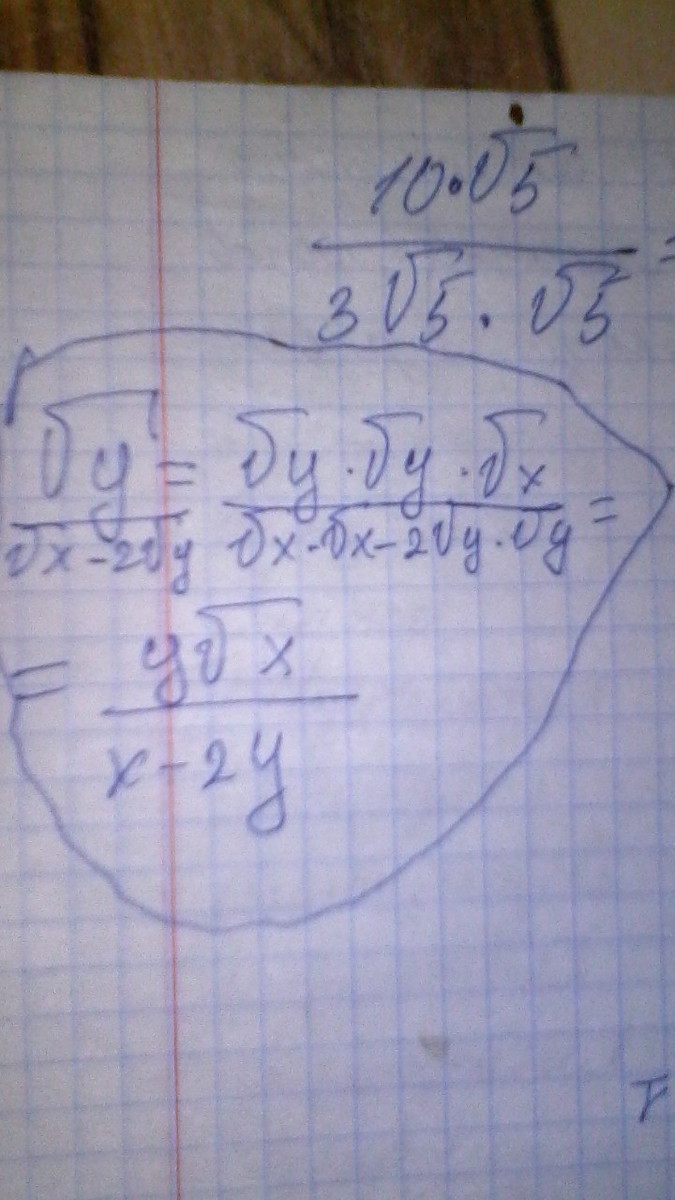 10·√5
3√5 · √5 =
√y / √x-2√y = √y·√y·√x / √x·√x-2√y·√y =
= y√x / x-2y